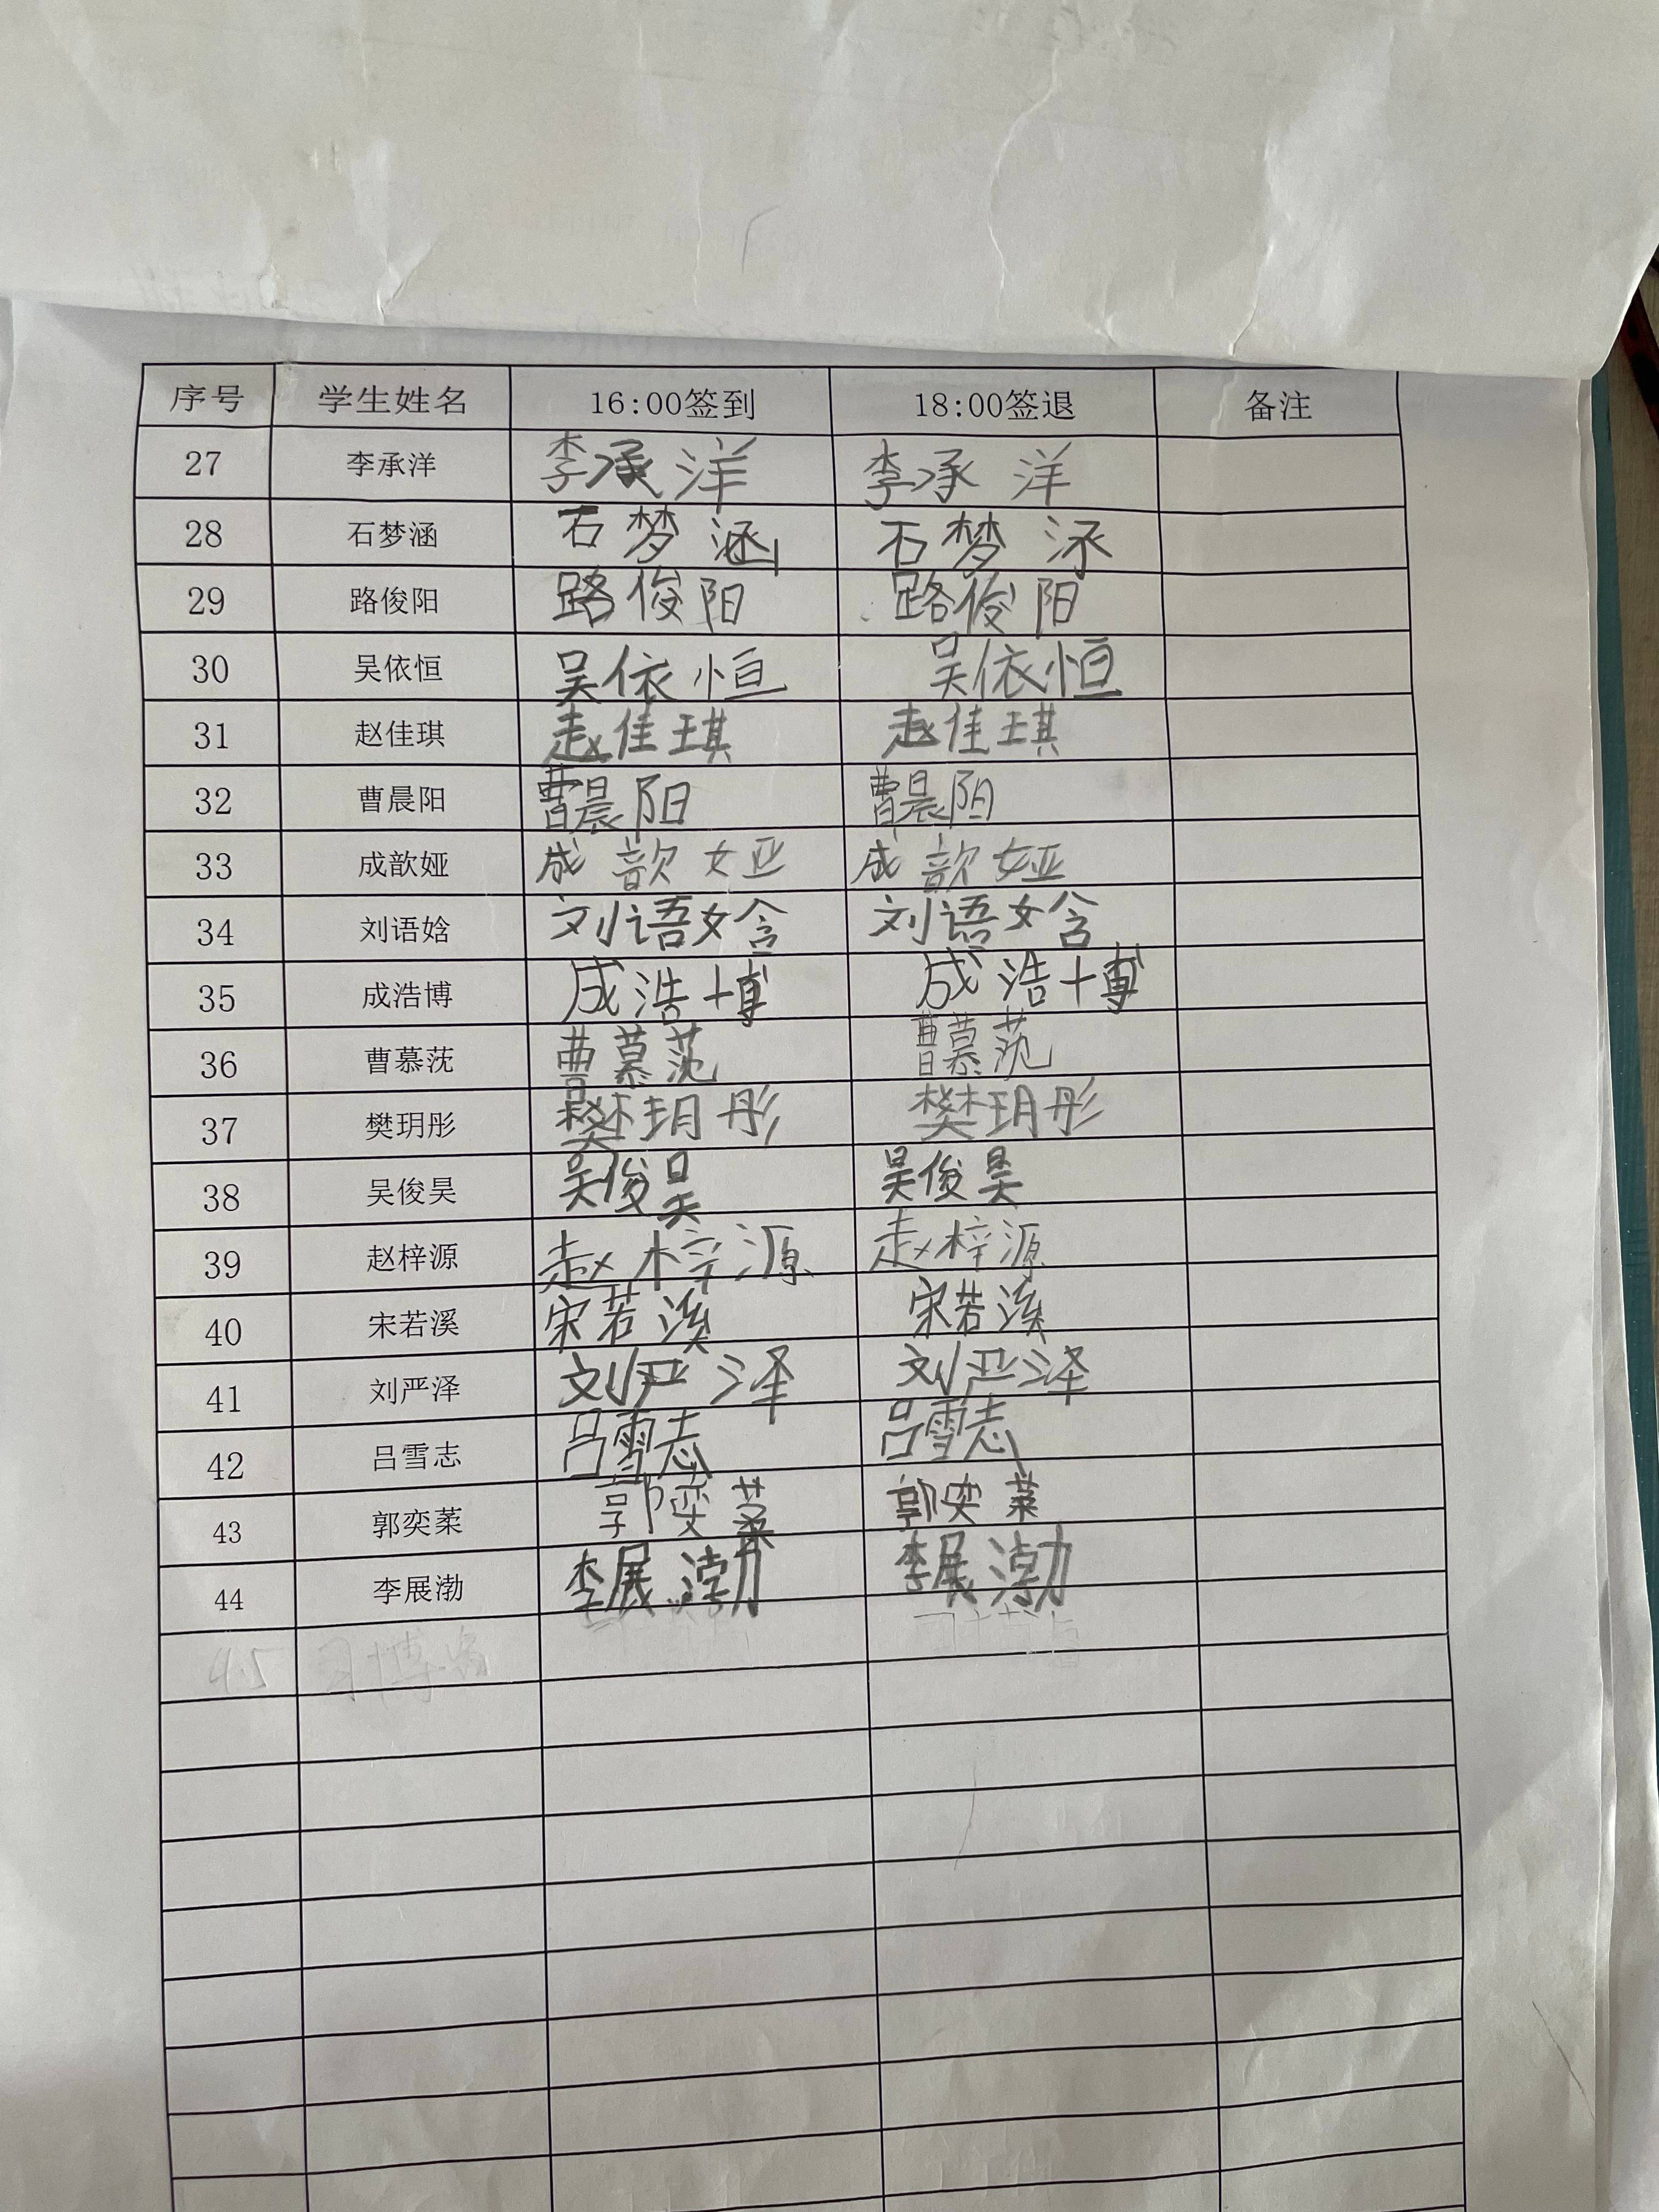 序号 学生姓名 16:00签到 18:00签退 备注
27 李承洋 李承洋 李承洋
28 石梦涵 石梦涵 石梦
29 路俊阳 路俊阳 路俊阳
30 吴依恒 吴依恒 吴依恒
31 赵佳琪 赵佳琪 赵佳琪
32 曹晨阳 曹晨阳 曹晨阳
33 成歆娅 成歆娅 成歆娅
34 刘语娢 刘语娢 刘语娢
35 成浩博 成浩博 成浩博
36 曹慕莐 曹慕莐 曹慕莐
37 樊玥彤 樊玥彤 樊玥彤
38 吴俊昊 吴俊昊 吴俊昊
39 赵梓源 赵梓源 赵梓源
40 宋若溪 宋若溪 宋若溪
41 刘严泽 刘严泽 刘严泽
42 吕雪志 吕雪志 吕雪志
43 郭奕菜 郭奕菜 郭奕菜
44 李展渤 李展渤 李展渤
45